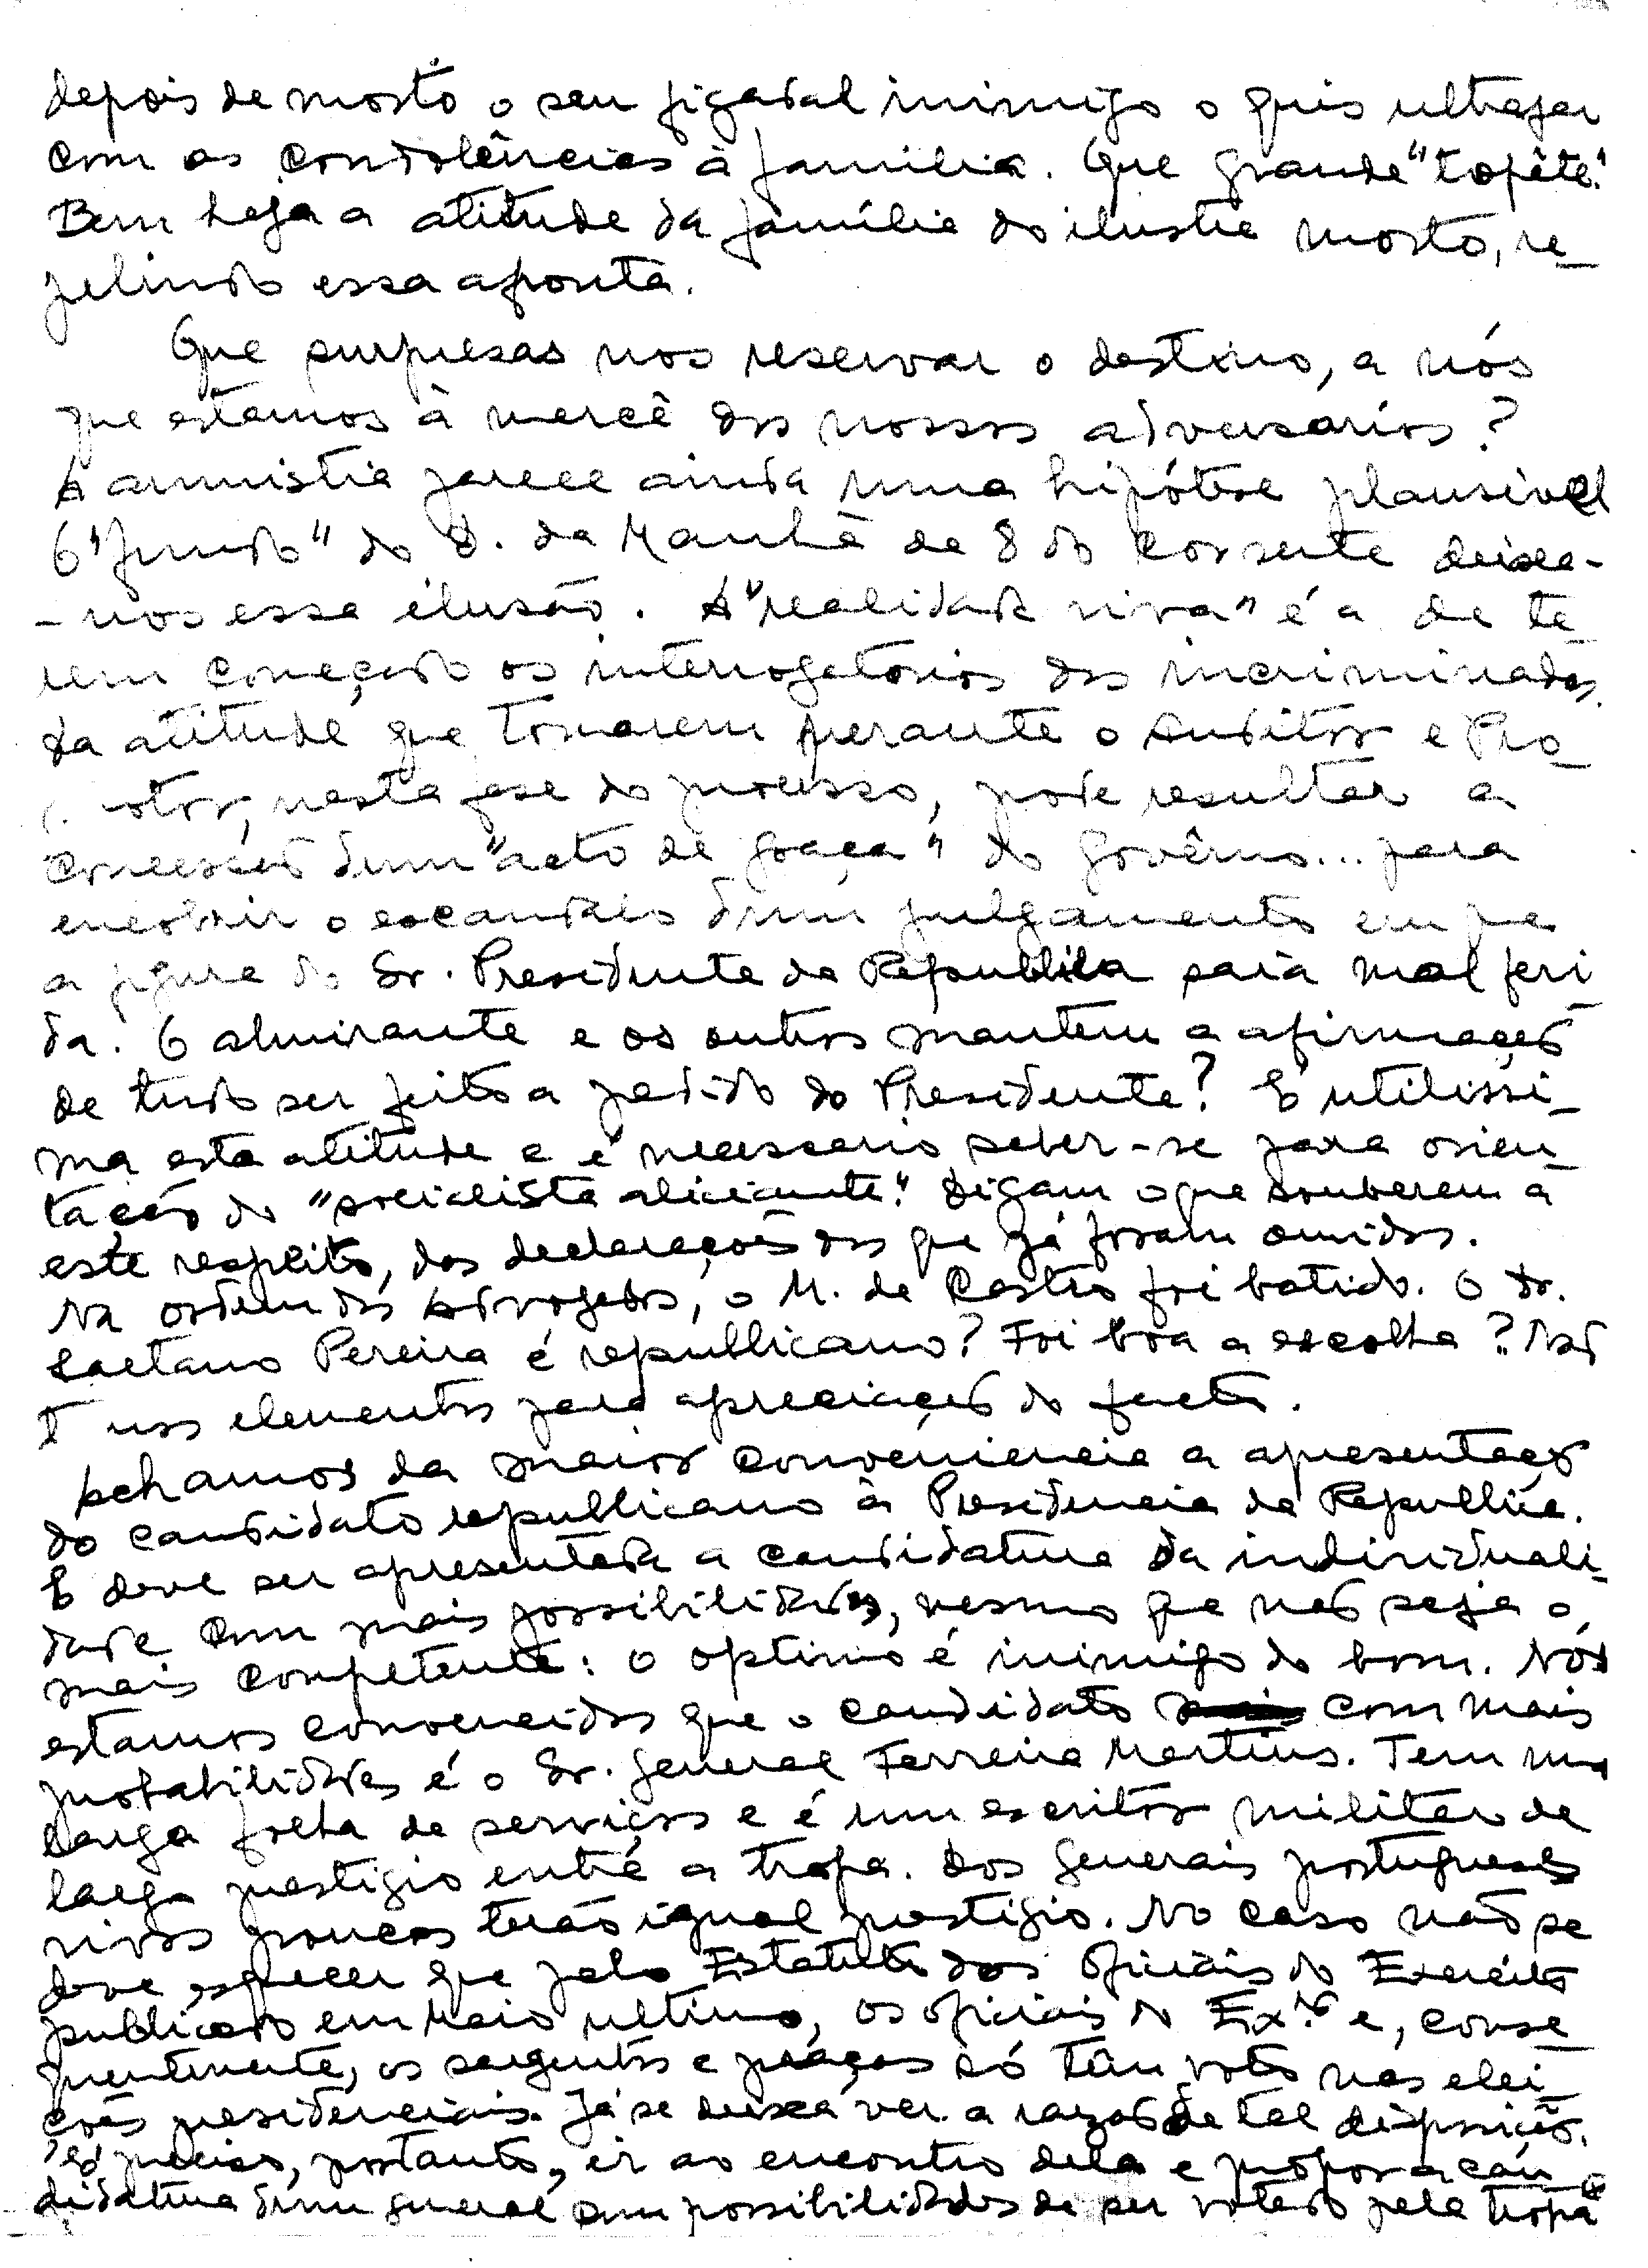 depois de morto o seu figadal inimigo o quis ultrajar
com as condolências à família. Que grande "topête".
Bem haja a atitude da família do ilustre morto, re-
pelindo essa afronta.
Que surpresas nos reservar o destino, a nós
que estamos à mercê dos nossos adversários?
A amnistia parece ainda uma hipótese plausível
O "fundo" do D. da Manhã de 8 do corrente deixa-
-nos essa ilusão. A "realidade viva" é a de te-
rem começado os interrogatorios dos incriminados.
da atitude, que tomarem perante o Auditor e Pro-
motor, nesta fase do processo, pode resultar a
concessão dum "acto de graça" do govêrno... para
encobrir o escandalo dum julgamento em que
a figura do Sr. Presidente da Republica saia mal feri
da. O almirante e os outros mantem a afirmação
de tudo ser feito a pedido do Presidente? É utilissi-
ma esta atitude e é necessario saber-se para orien-
tação do "socialista aliciante". Digam o que souberem a
este respeito, das declarações dos que já foram ouvidos.
Na ordem dos Advogados, o M. de Castro foi batido. O dr.
Caetano Pereira é republicano? Foi boa a escolha? Não
T nos elementos para apreciação do facto.
Achamos da maior conveniencia a apresentação
do candidato republicano à Presidencia da Republica.
E deve ser apresentada a candidatura da individuali-
dade com mais possibilidades, mesmo que não seja o
mais competente: o optimo é inimigo do bom. Nós
estamos convencidos que o candidato com mais
probabilidades é o Sr. general Ferreira Martins. Tem uma
larga folha de serviços e é um escritor militar de
largo prestigio entre a tropa. Dos generais portugueses
vivos poucos terão igual prestigio. No caso não se
deve esquecer que pelo Estatuto dos Oficiais do Exercito
publicado em Maio ultimo, os oficiais do Ex.to e, conse-
quentemente, os sargentos e praças só têm voto nas elei-
ções presidenciais. Já se deixa ver a razão de tal disposição.
É preciso, portanto, ir ao encontro dela e propor a can-
didatura dum general com possibilidades de ser votado pela tropa